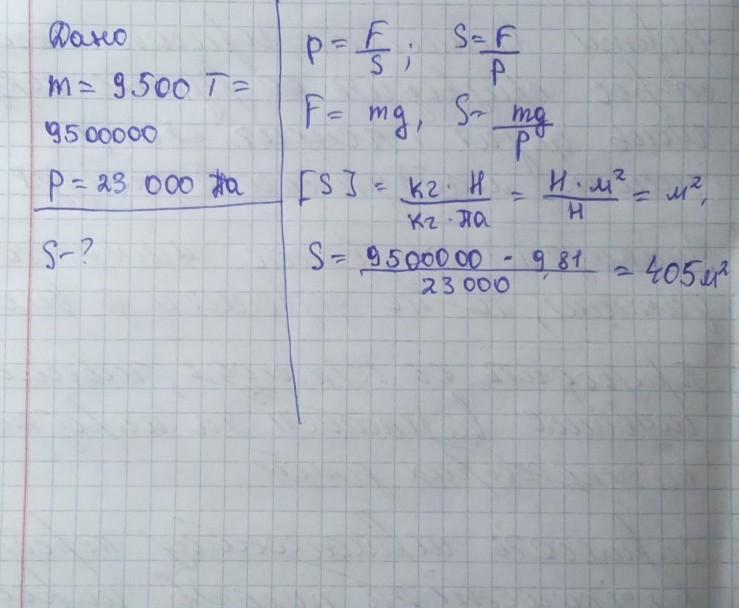 Дано
m = 9500 т =
9500000
P = 23 000 Па
S-?
p = F/S; S = F/P
F = mg, S = mg/P
[S] = кг · Н/кг · Па = Н · м²/Н = м²,
S = 9500000 · 9,81/23000 = 405м²